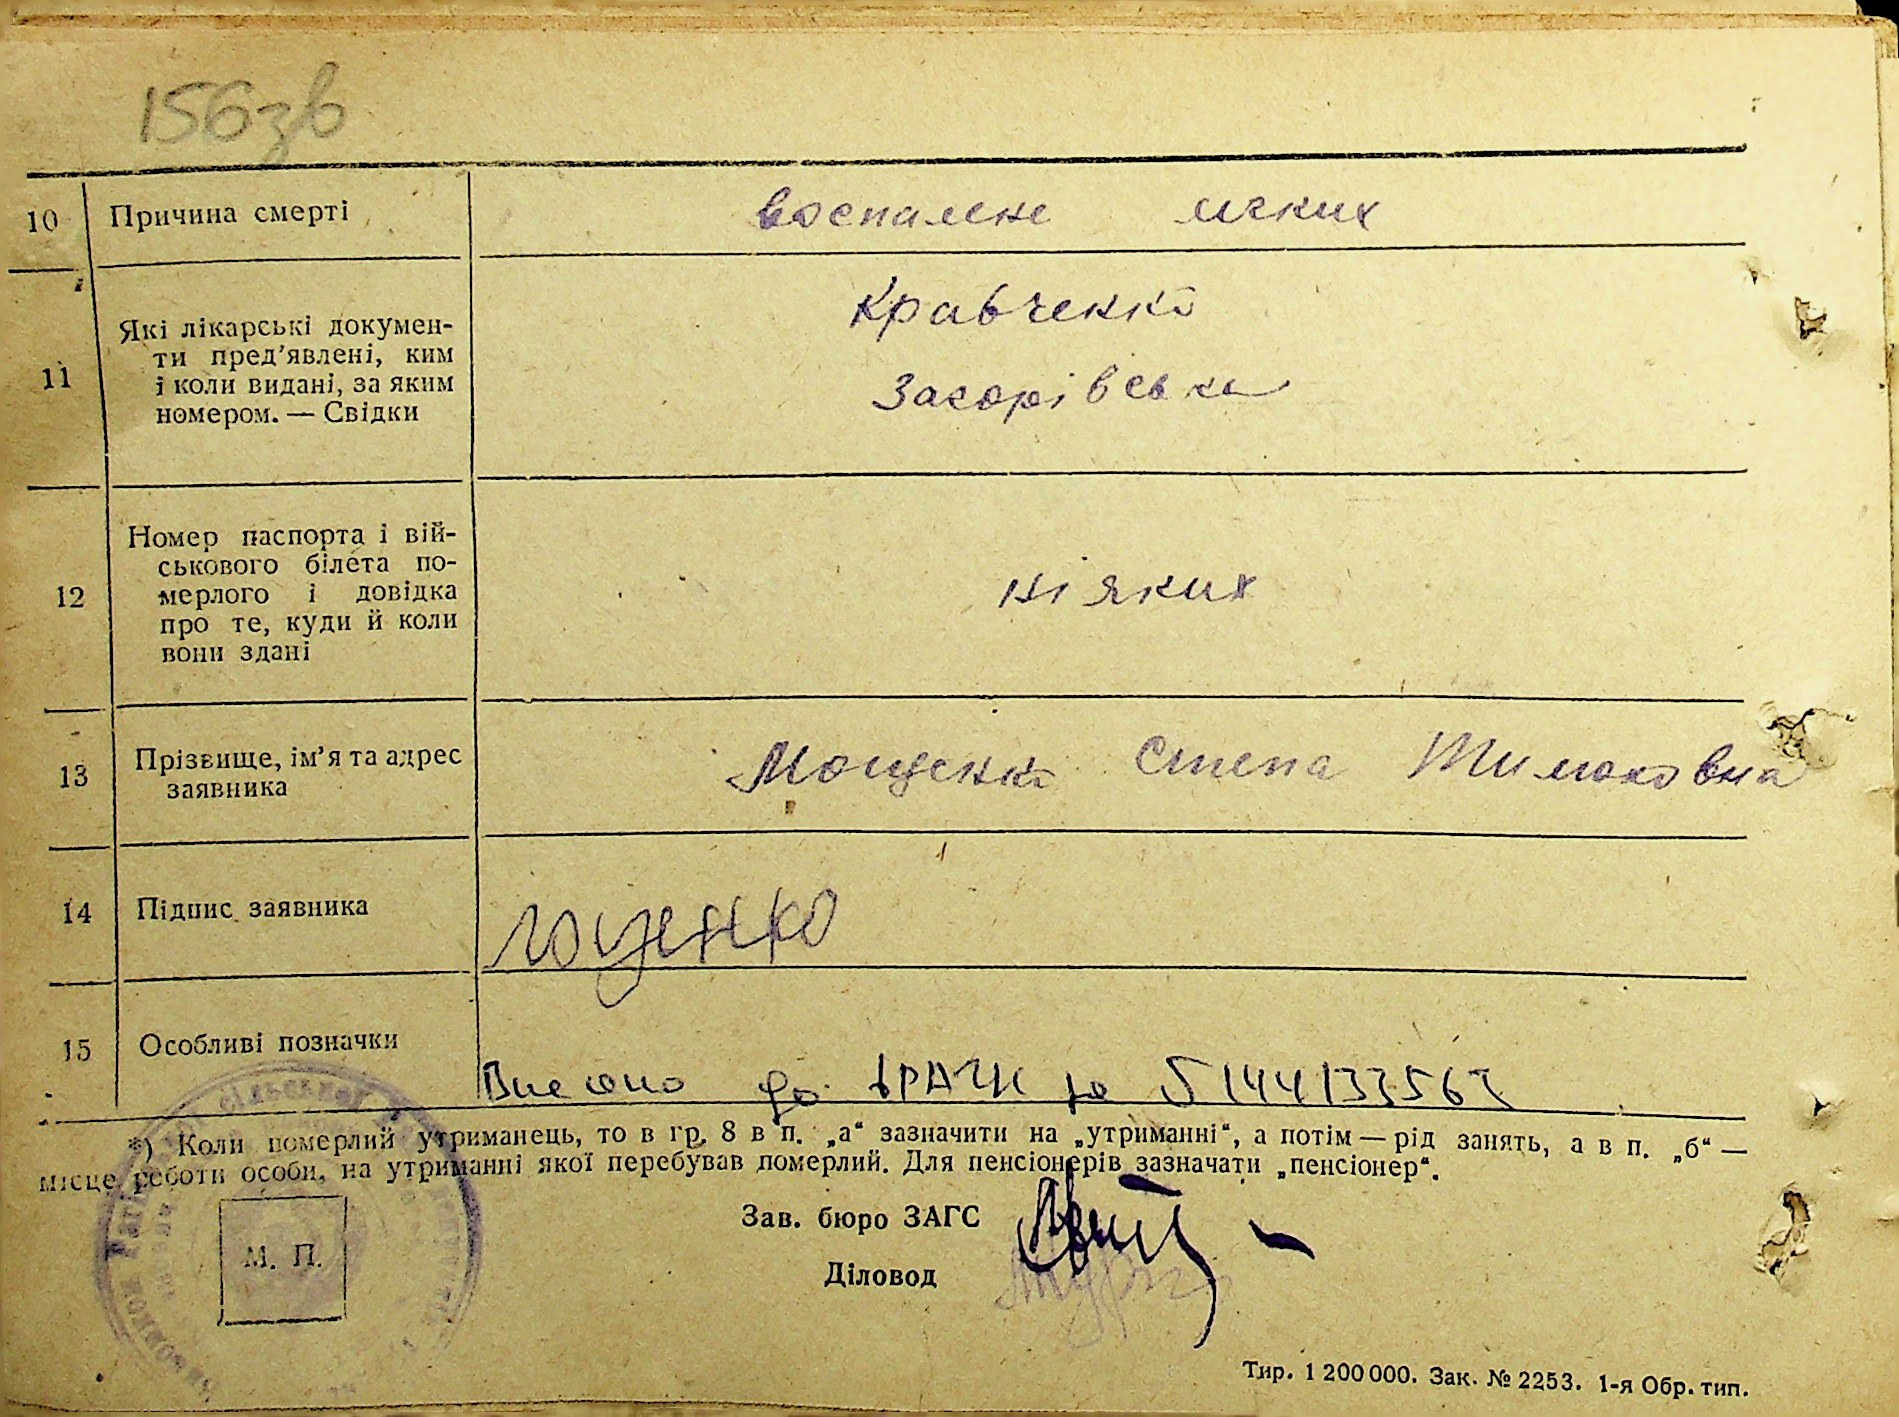 156зв
10 Причина смерті воспалене лгких
11 Які лікарські докумен-
ти пред’явлені, ким
і коли видані, за яким
номером. — Свідки
Кравченко
Загорівська
12 Номер паспорта і вій-
ськового білета по-
мерлого і довідка
про те, куди й коли
вони здані
ніяких
13 Прізвище, ім’я та адрес
заявника
Мощенко Степа Тимоховна
14 Підпис заявника
15 Особливі позначки
Внесено до ДРАЦС за
*) Коли померлий утриманець, то в гр. 8 в п. „а“ зазначити на „утриманні“, а потім — рід занять, а в п. „б“ —
місце роботи особи, на утриманні якої перебував померлий. Для пенсіонерів зазначати „пенсіонер“.
Зав. бюро ЗАГС
М. П.
Діловод
Тир. 1 200 000. Зак. № 2253. 1-я Обр. тип.